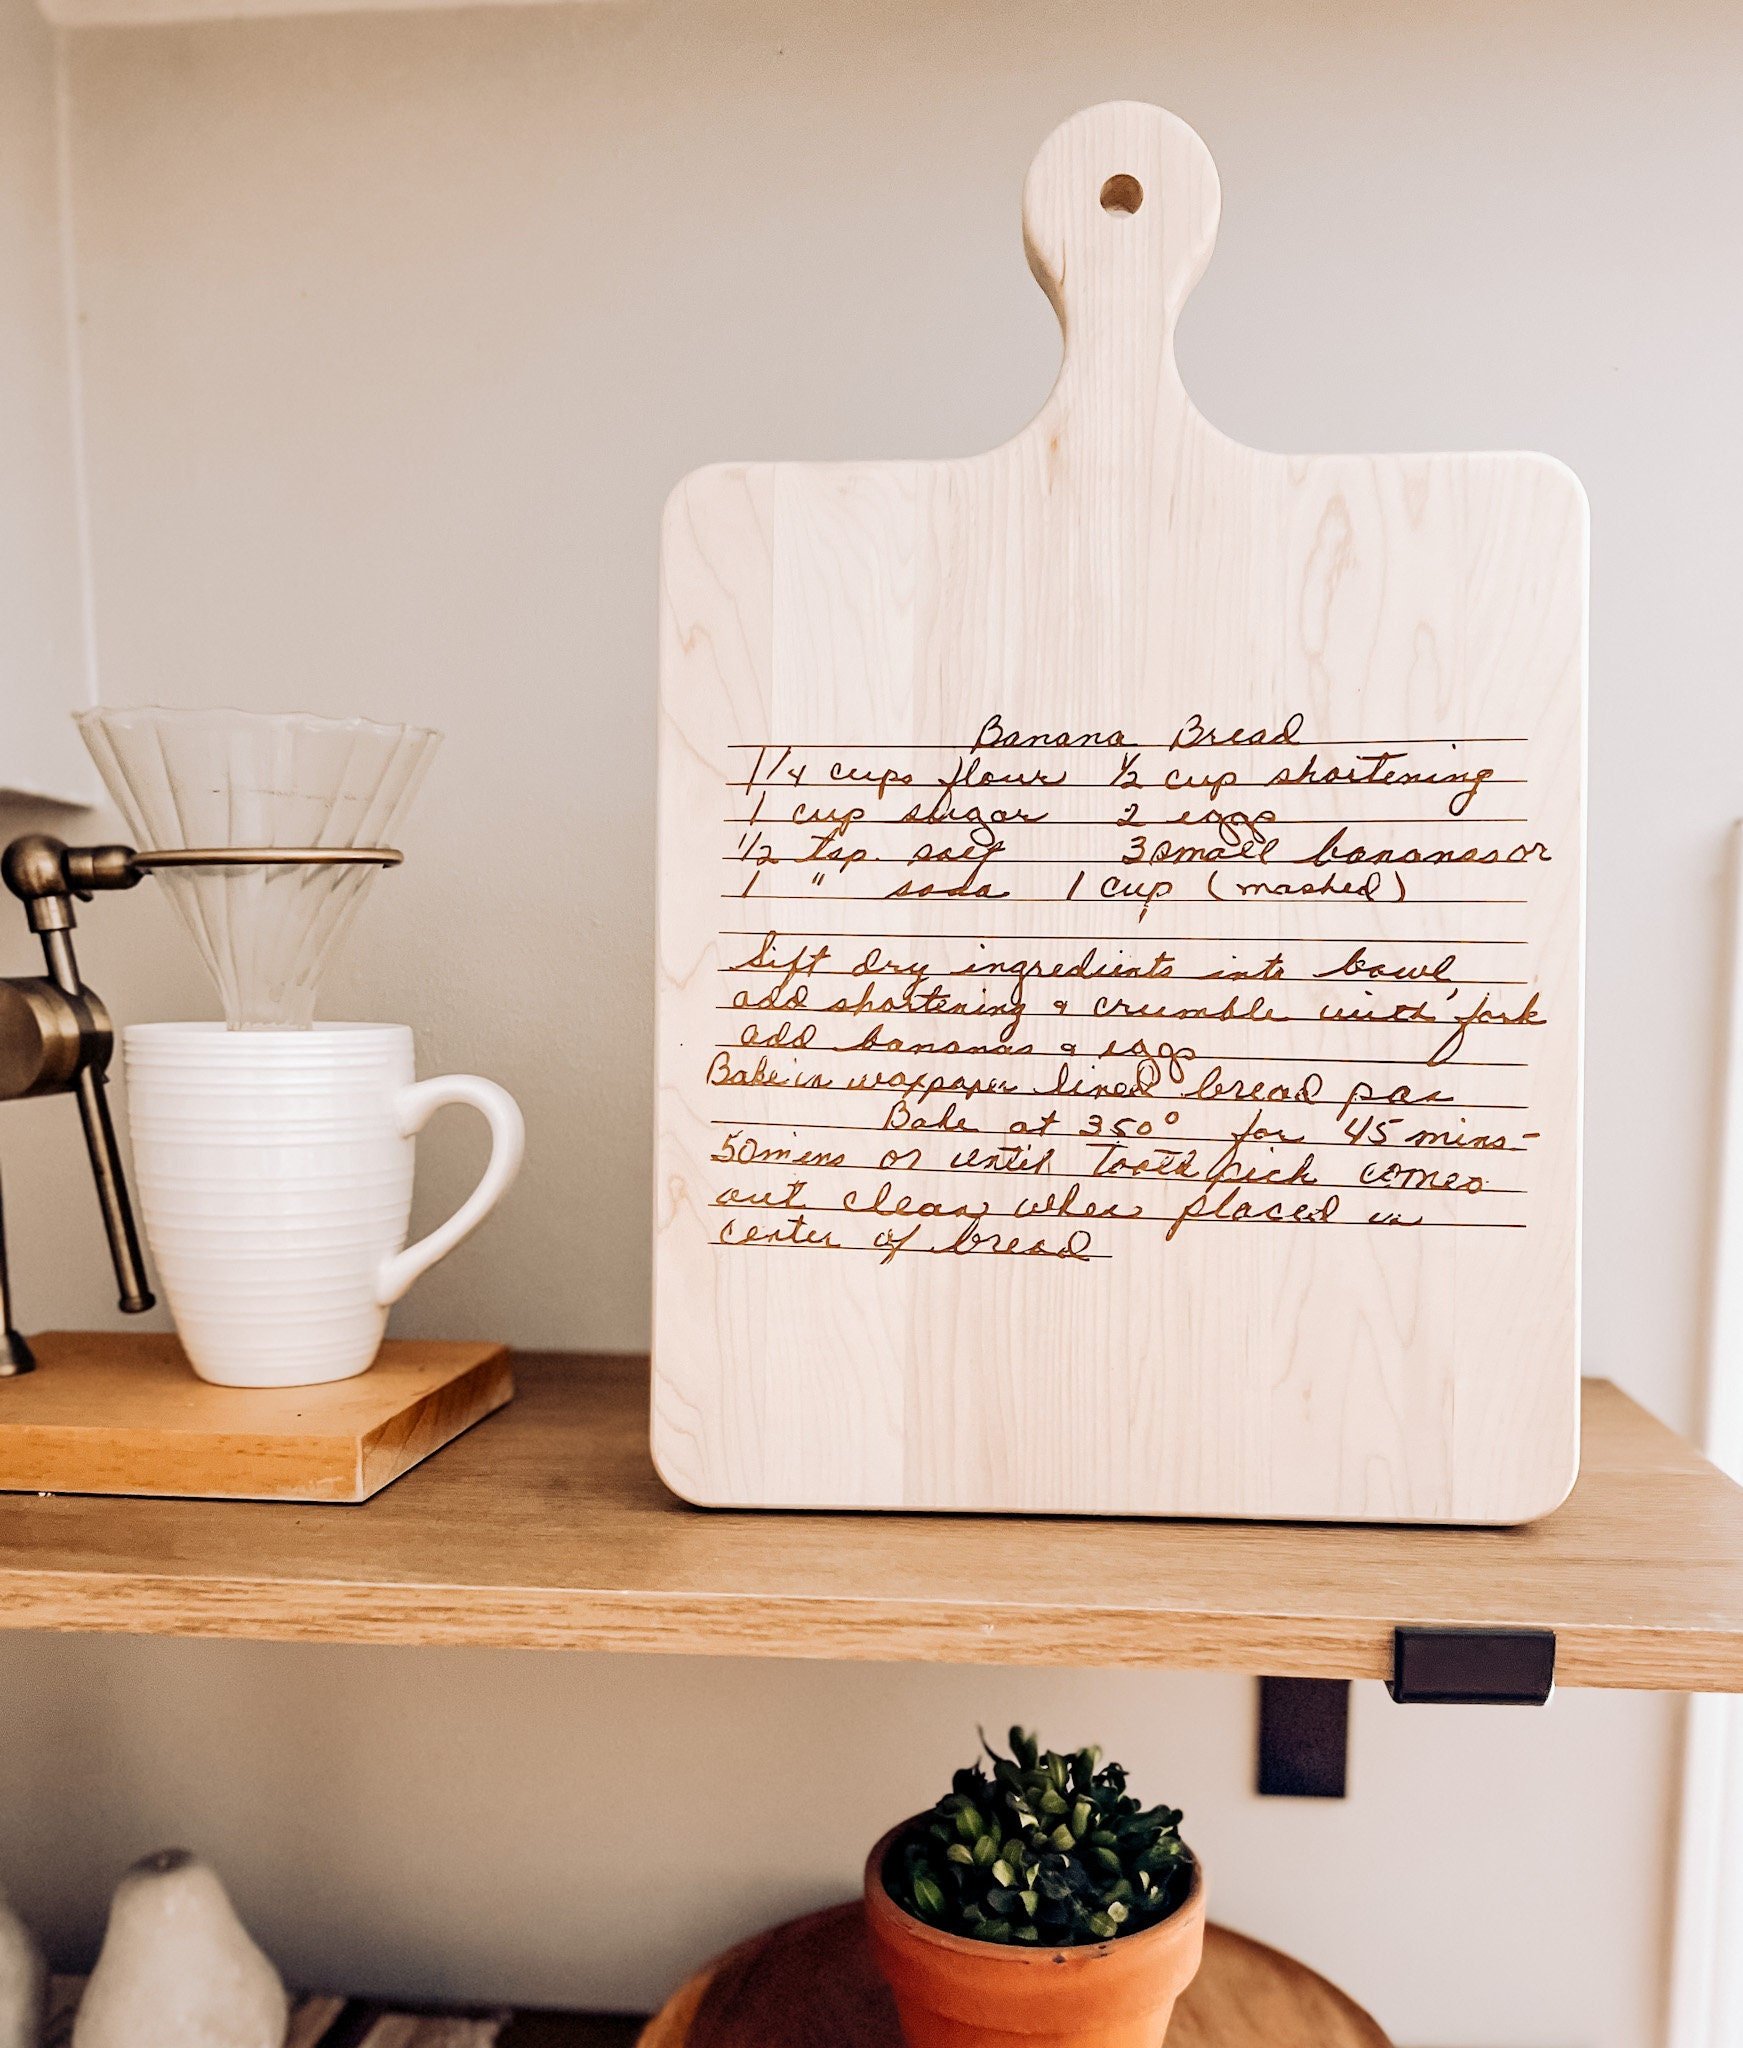 Banana Bread
1 1/4 cups flour 1/2 cup shortening
1 cup sugar 2 eggs
1/2 tsp. salt 3 small bananas or
1 " soda 1 cup (mashed)
Sift dry ingredients into bowl,
add shortening & crumble with fork
add bananas & eggs
Bake in waxpaper lined bread pan
Bake at 350° for 45 mins-
50 mins or until toothpick comes
out clean when placed in
center of bread